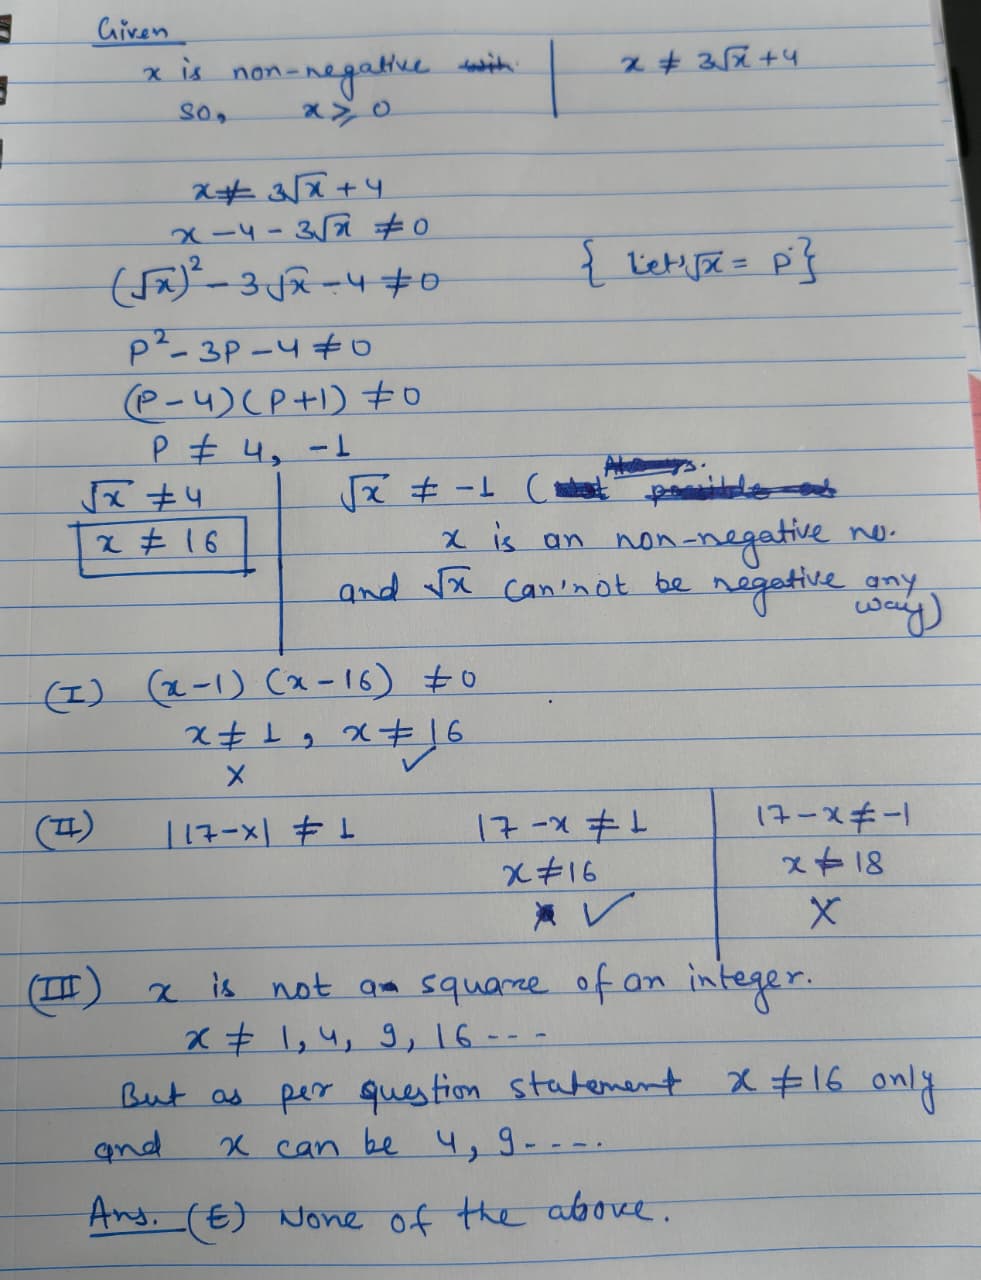 Given
x is non-negative with | x ≠ 3√x + 4
so, x ≥ 0
x ≠ 3√x + 4
x - 4 - 3√x ≠ 0
(√x)² - 3√x - 4 ≠ 0 { Let's √x = P }
P² - 3P - 4 ≠ 0
(P - 4) (P + 1) ≠ 0
P ≠ 4, -1
√x ≠ 4 | √x ≠ -1 (
x ≠ 16 | x is an non-negative no.
and √x can'not be negative any
way)
(I) (x - 1) (x - 16) ≠ 0
x ≠ 1, x ≠ 16
× ✓
(II) |17 - x| ≠ 1 17 - x ≠ 1 | 17 - x ≠ -1
x ≠ 16 | x ≠ 18
✓ | ×
(III) x is not a square of an integer.
x ≠ 1, 4, 9, 16 ---
But as per question statement x ≠ 16 only
and x can be 4, 9 ----.
Ans. (E) None of the above.